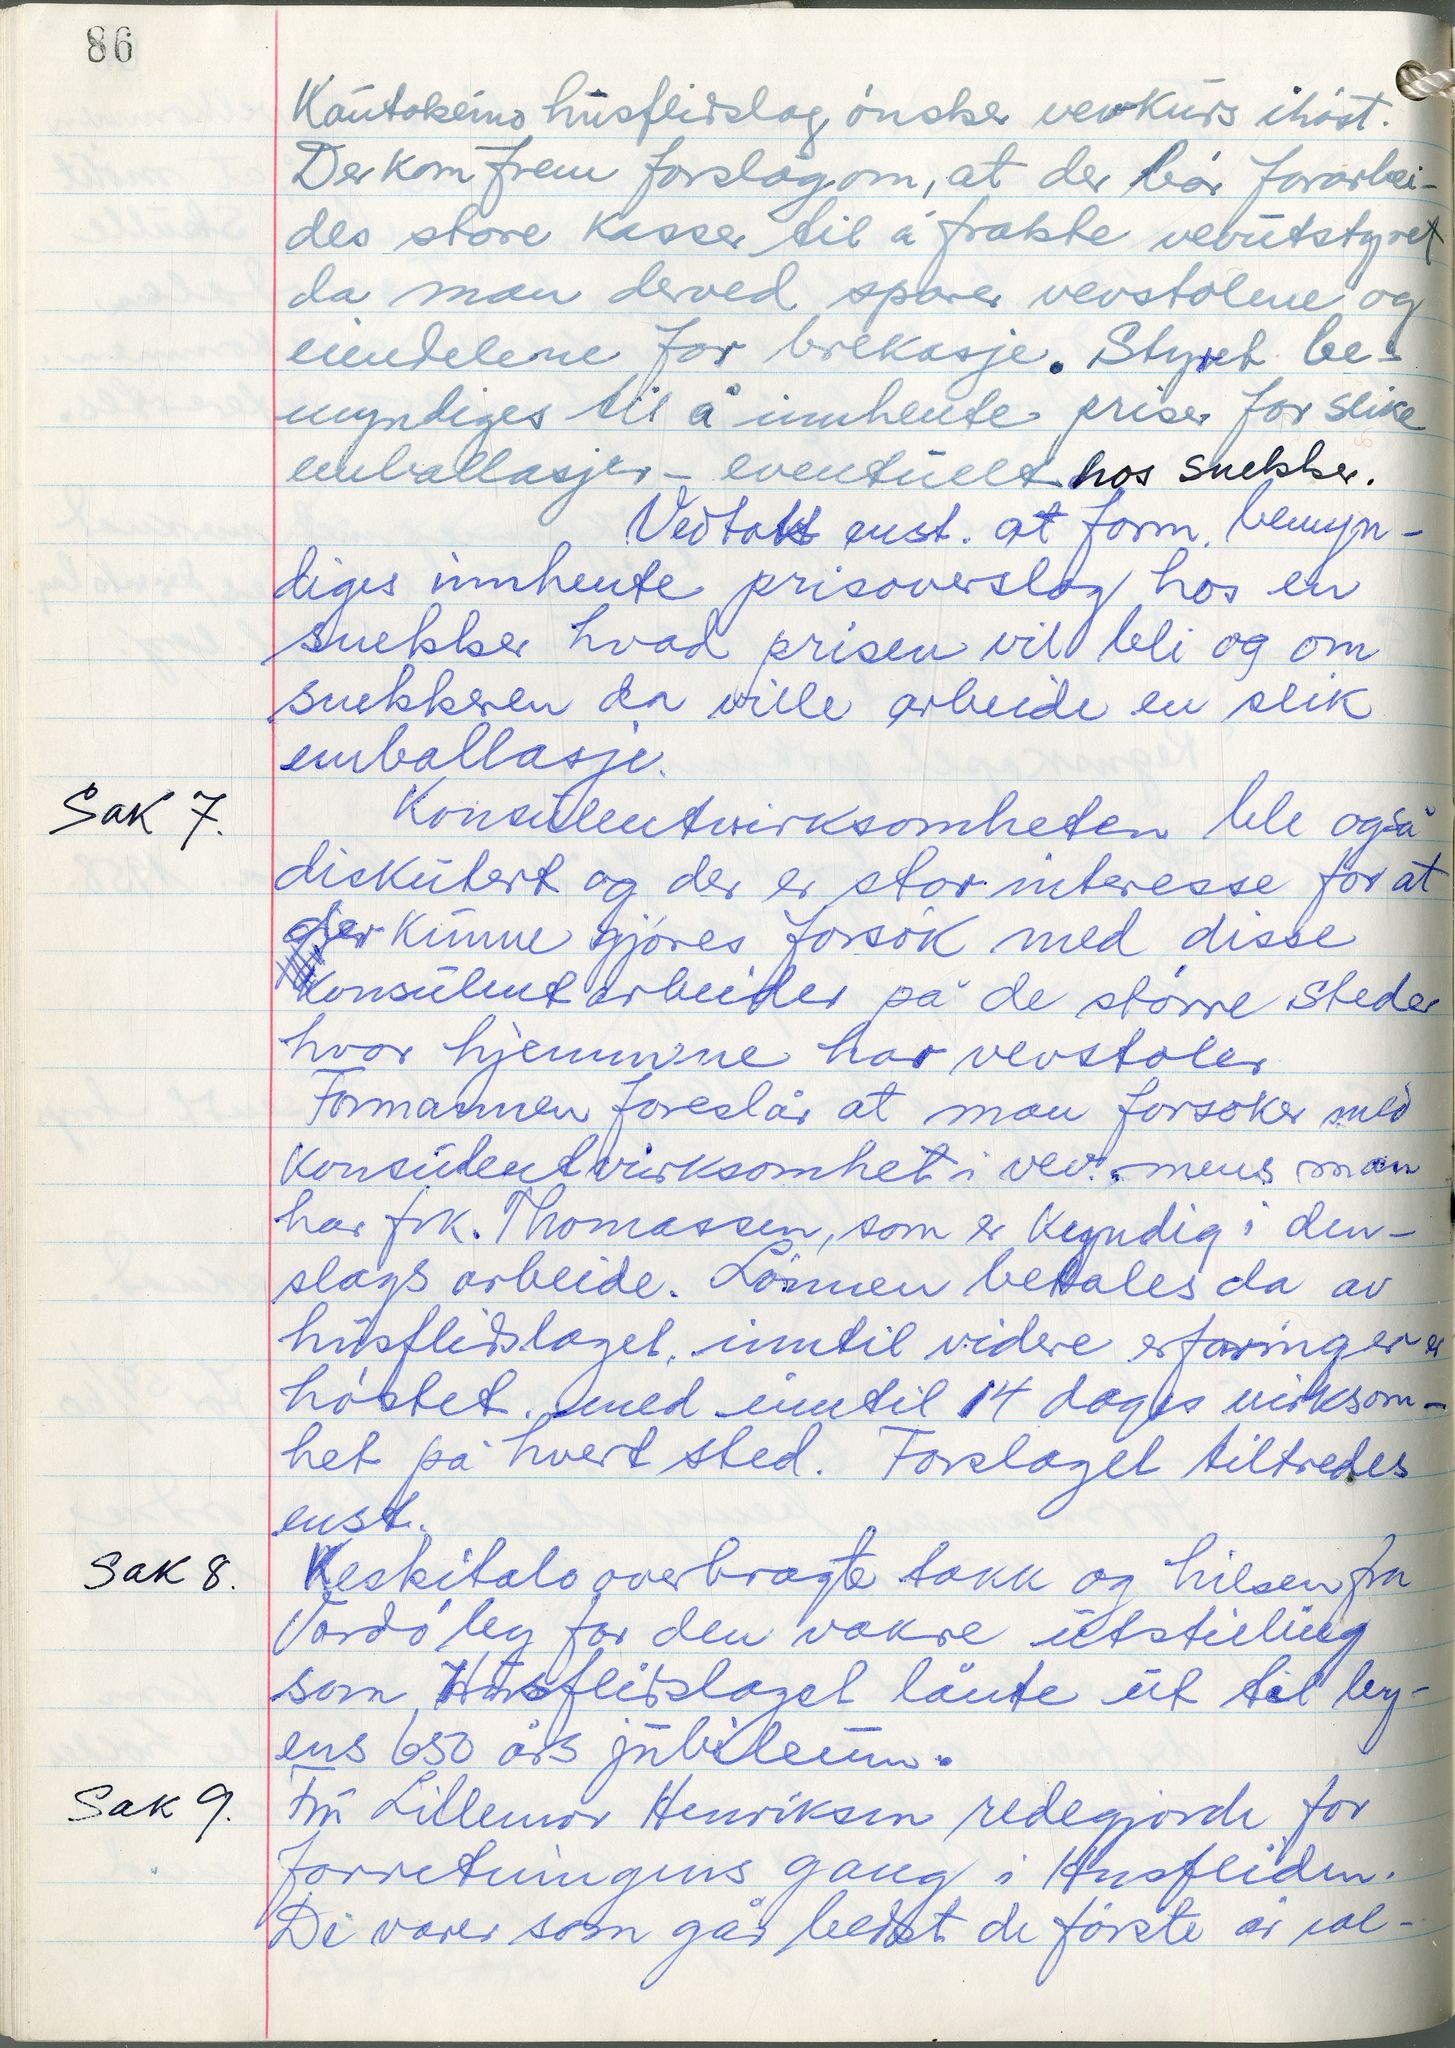 86
Kautokeino husflidslag ønsker vevkurs ihøst.
Der kom frem forslag om, at der bør forarbei-
des store kasser til å frakte vevutstyret
da man derved sparer vevstolene og
eiendelene for brekasje. Styret be-
myndiges til å innhente priser for slike
emballasjer - eventuelt hos snekker.
Vedtatt enst. at form. bemyn-
diges innhente prisoverslag hos en
snekker hvad prisen vil bli og om
snekkeren da ville arbeide en slik
emballasje.
Sak 7. Konsulentvirksomheten ble også
diskutert og der er stor interesse for at
der kunne gjøres forsøk med disse
Konsulentarbeider på de større steder
hvor hjemmene har vevstoler
Formannen foreslår at man forsøker med
Konsulentvirksomhet i vev. mens man
har frk. Thomassen, som er kyndig i den-
slags arbeide. Lønnen betales da av
husflidslaget, inntil videre erfaringer er
høstet. med inntil 14 dages virksom-
het på hvert sted. Forslaget tiltredes
enst.
Sak 8. Keskitalo overbragte takk og hilsen fra
Vardø by for den vakre utstilling
som Husflidslaget lånte ut til by-
ens 650 års jubileum.
Sak 9. Fru Lillemor Henriksen redegjorde for
forretningens gang i Husfliden.
De varer som går bedst de første år